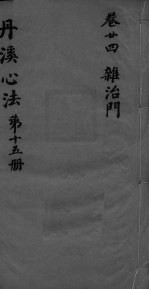 卷廿四 雜治門
丹溪心法 第十五册